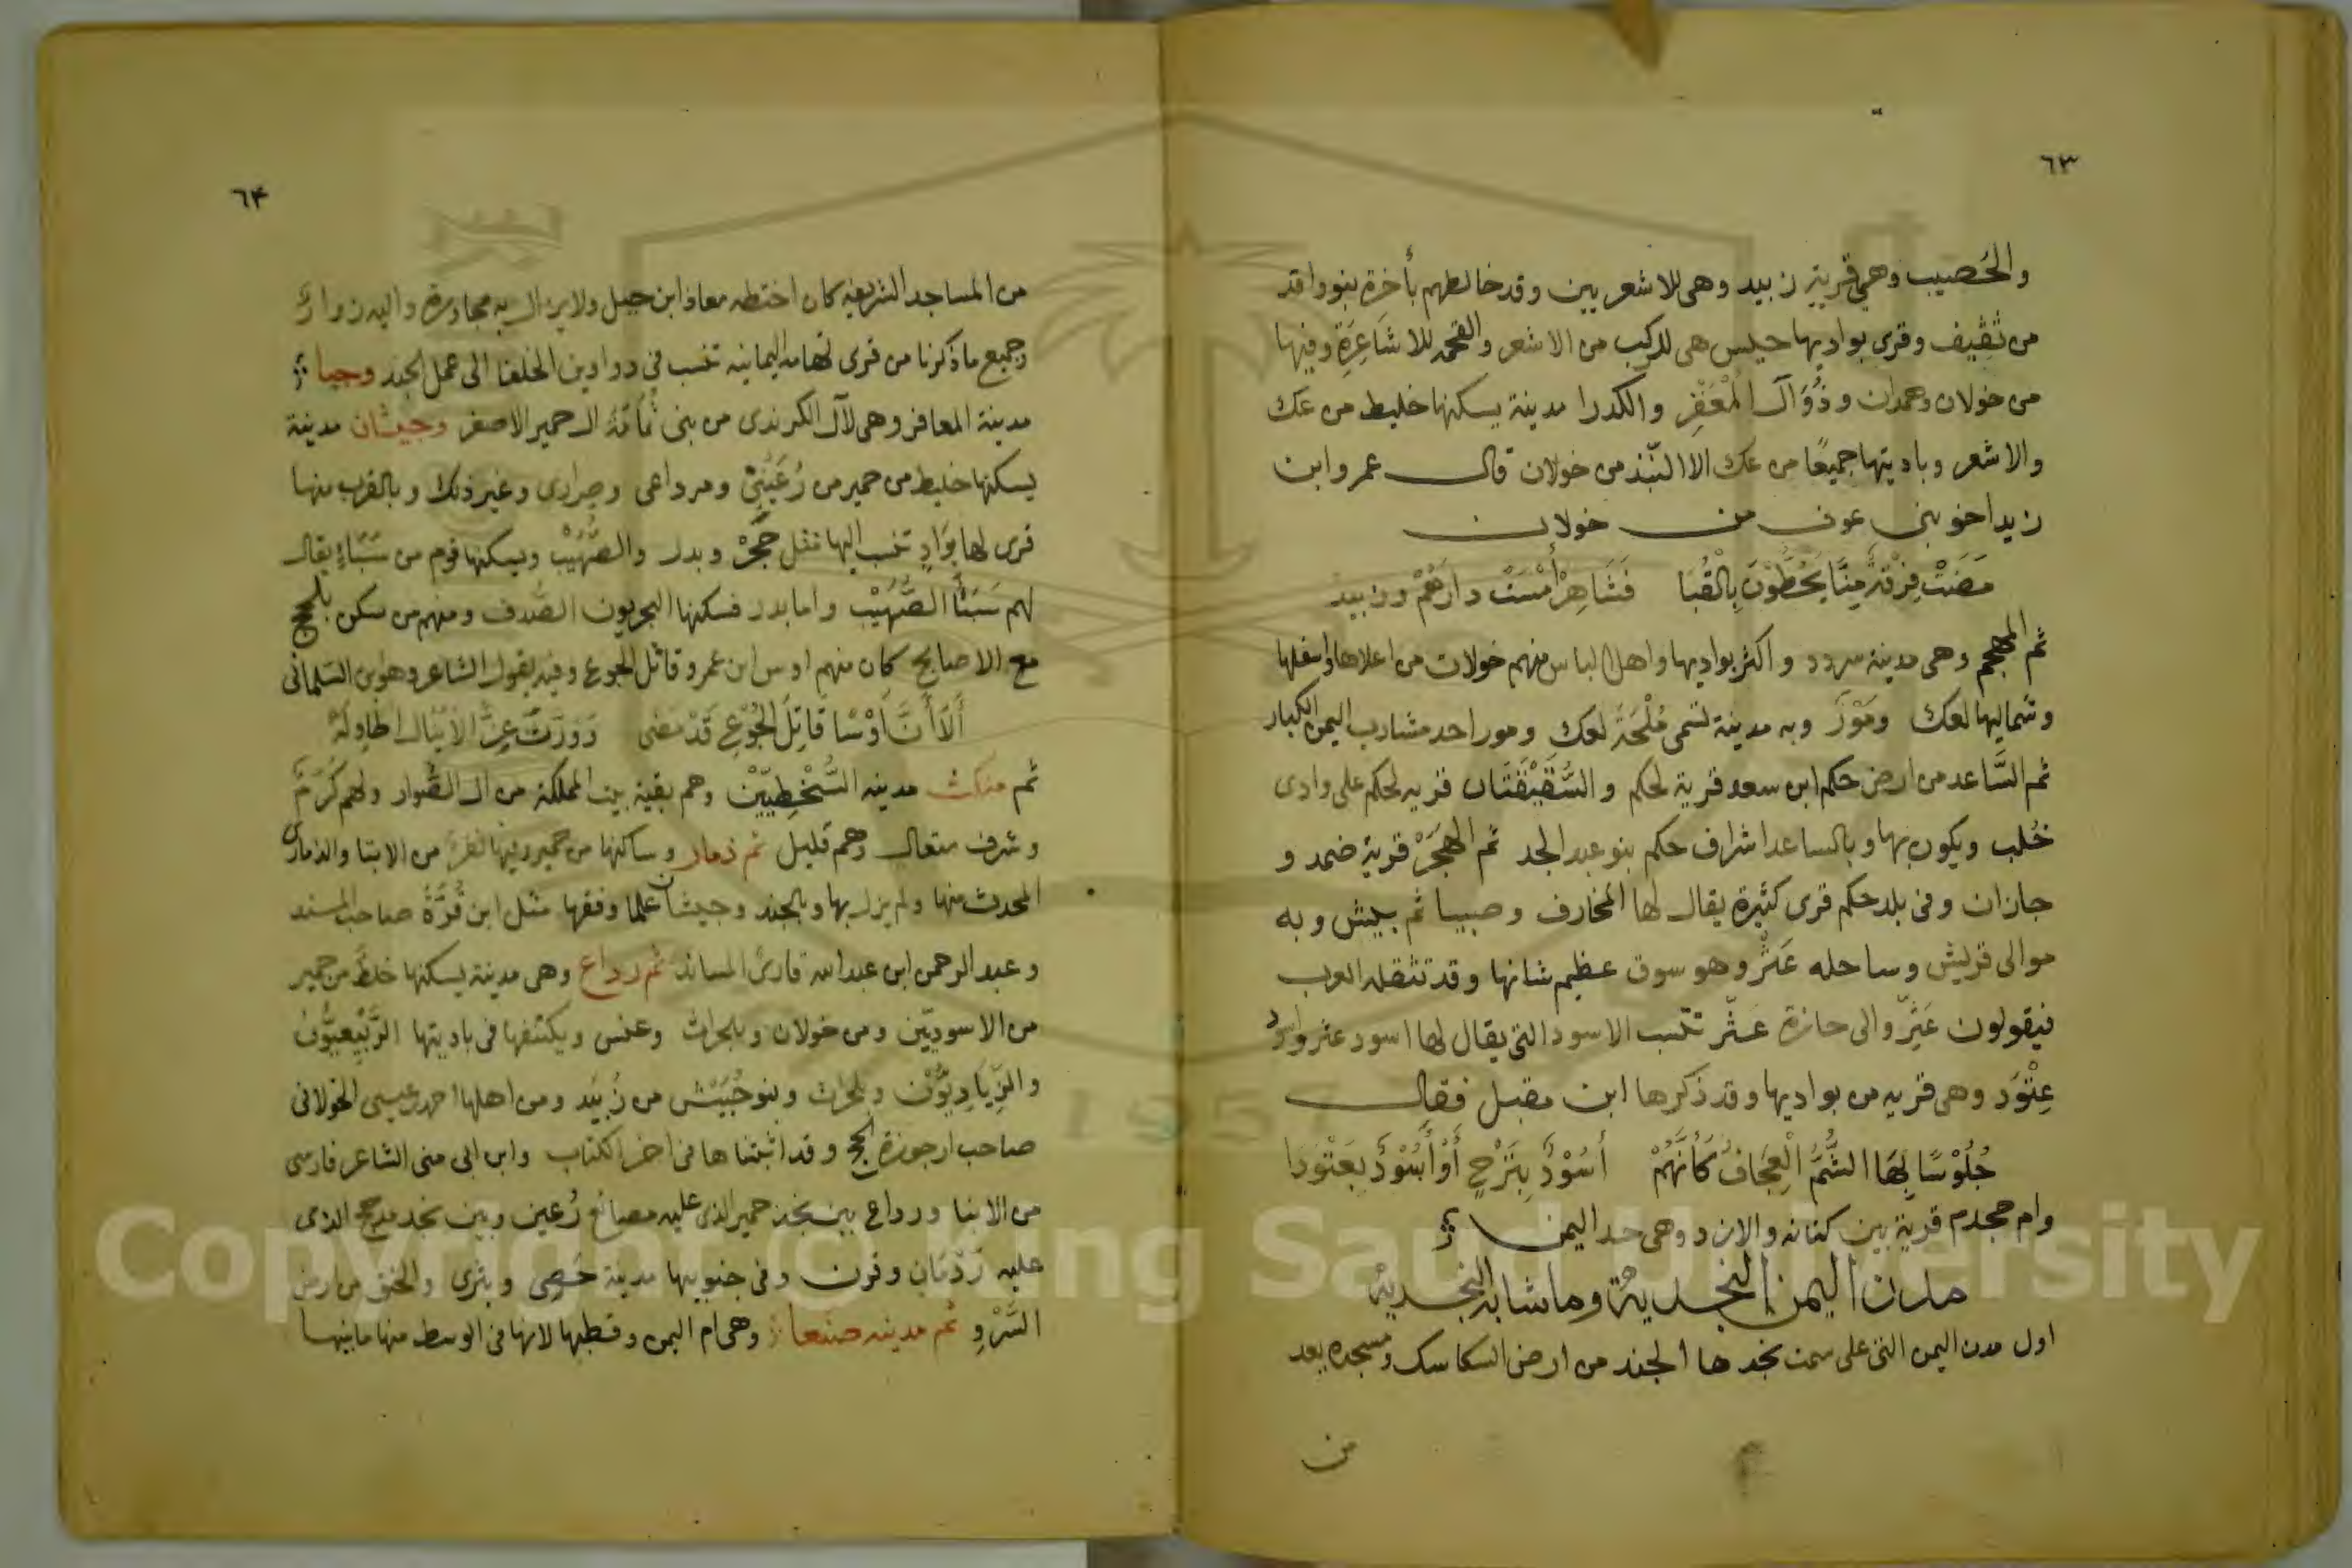 ٦٣
والحُصيب وهي قرية زبيد وهى للاشعريين وقد خالطهم بأخرة بنو واقد
من ثقيف وقرى بواديها حيس هى للركب من الاشعر والقحمه للاشَاعِرَةِ وفيها
من خولان وهمدان وذُوَال المْعَقر والكدرا مدينة يسكنها خليط من عك
والاشعر وباديتها جميعًا من عك الا النّبذ من خولان قال عمرو ابن
زيد اخو بنى عوف من خولان
مَضَتْ فِرْقَةٌ مِنَّا يَحُطُّوْنَ بِالْقُبَا فَشَاهِرْ أَمْسَتْ دارَهُمْ وزبيد
ثم المهجم وهى مدينة سردد واكثر بواديها واهل الباس منهم خولان من اعلاها واسفلها
وشماليها لعك ومَوْرَ وبه مدينة تسمى مُلْحَةً لعك ومور احد مشارب اليمن الكبار
ثم السَّاعد من ارض حكم ابن سعد قرية لحكم والسُّقَيْفَتَان قريه لحكم على وادى
خُلب ويكون بها وبالساعد اشراف حكم بنو عبد الجد ثم الهَجَرْ قرية ضمد و
جازان وفى بلد حكم قرى كثيرة يقال لها المخارف وصبيا ثم ببيش وبه
موالى قريش وساحله عَثْر وهو سوق عظيم شانها وقد تثقله العرب
فيقولون عَثَّر والى حازة عثّر تنسب الاسود التى يقال لها اسود عثر واسود
عِتْوَد وهى قريه من بواديها وقد ذكرها ابن مقبل فقال
جُلُوْسًا بِهَا الشُّمُّ الْعِجَافُ كَأَنَّهُمْ أُسُوْدٌ بِتَرْجٍ أَوْ أُسُوْدٌ بِعَتْوَدا
وام جحدم قرية بين كنانه والازد وهى حد اليمن
مدن اليمن النجدية وما شابه النجدية
اول مدن اليمن التى على سمت نجدها الجند من ارض السكاسك ومسجده يعد
من
٦٤
من المساجد الشريفه كان اختطه معاذ ابن جبل ولا يزال به مجاورة واليه زوار
وجميع ما ذكرنا من قرى تهامه اليمانيه تنسب فى دواوين الخلفا الى عمل الجند وجبا
مدينة المعافر وهى لآل الكرندى من بنى ثُمَامَةُ ال حمير الاصغر وجيشان مدينة
يسكنها خليط من حمير من رُعَيْنِيّ ومرداعى وصرارى وغير ذلك وبالقرب منها
قرى لها بَوَادٍ تنسب اليها مثل حَجَرْ وبدر والصُّهَيْب ويسكنها قوم من سَبَاءٍ يقال
لهم سَبَأ الصُّهَيْب واما بدر فسكنها البحريون الصَّدف ومنهم من سكن بلحج
مع الاصابح كان منهم اوس ابن عمرو قاتل الجوع وفيه يقول الشاعر وهو ابن السّلمانى
أَلَا أَنَّ أَوْسًا قَاتِلَ الجُوْعِ قَدْ مَضى وَوَرَّثَ عِزَّ الا يُنال اطاوِلَهْ
ثم منكث مدينه السُّخْطِيّيْن وهم بقية بيت المملكة من ال الصُّوار ولهم كَرَمٌ
وشرف متعال وهم قليل ثم ذمار وساكنها من حمير وبها نفر من الابنا والذمارى
المحدث منها ولم يزل بها وبالجند وجيشان علما وفقها مثل ابن قُرَّةْ صاحب المسند
وعبد الرحمن ابن عبد الله قارئ المساند ثم رداع وهى مدينة يسكنها خلط من حمير
من الاسوديّين ومن خولان وبلحراث وعنس ويكتنفها فى باديتها الرَّبِيْعيُّون
والزِّيَادِيُّوْن وبلحراث وبنو حُبَيْش من زُبَيد ومن اهلها احمد بن عيسى الخولانى
صاحب ارجوزة الحج وقد اثبتناها فى اخر الكتاب وابن ابى منى الشاعر فارسى
من الابنا ورداع بين نجد حمير الذى عليه مصانع رُعين وبين نجد مذحج الذى
عليه رَدْمَان وقرن وفى جنوبيها مدينة حَصى وبترى والخنق من ارض
السَّرْوِ ثم مدينه صنعا وهى ام اليمن وقطبها لانها فى الوسط منها ما بينها
Copyright © King Saud University
1957